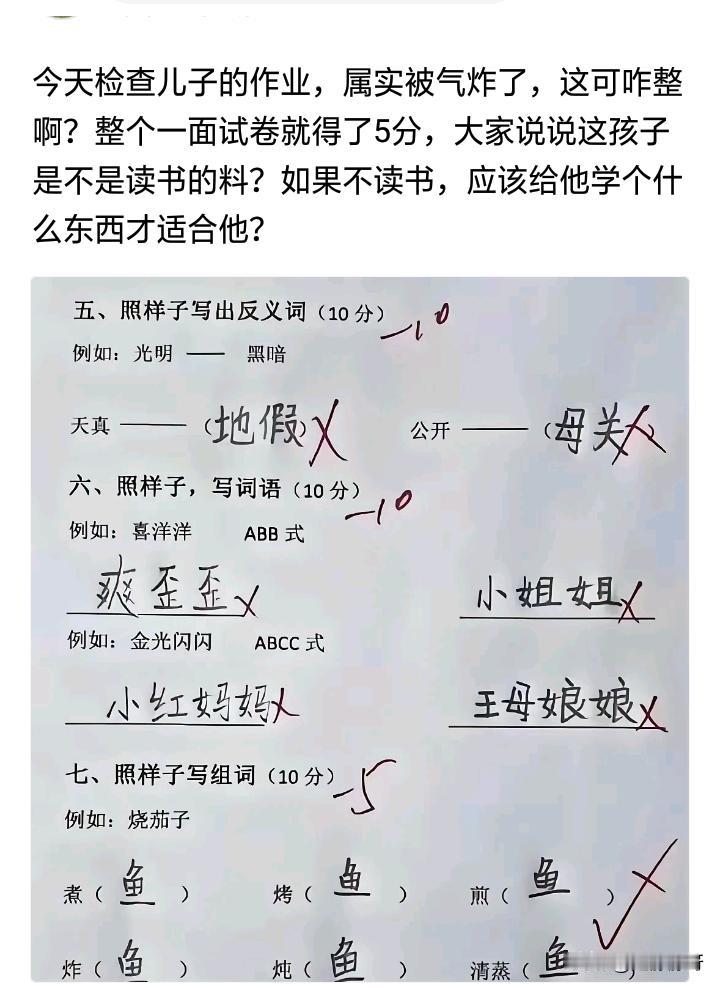 今天检查儿子的作业，属实被气炸了，这可咋整
啊？整个一面试卷就得了5分，大家说说这孩子
是不是读书的料？如果不读书，应该给他学个什
么东西才适合他？
五、照样子写出反义词（10 分） -10
例如：光明 —— 黑暗
天真 ——（地假） 公开 ——（母关）
六、照样子，写词语（10 分） -10
例如：喜洋洋 ABB 式
爽歪歪 小姐姐
例如：金光闪闪 ABCC 式
小红妈妈 王母娘娘
七、照样子写组词（10 分） -5
例如：烧茄子
煮（鱼） 烤（鱼） 煎（鱼）
炸（鱼） 炖（鱼） 清蒸（鱼